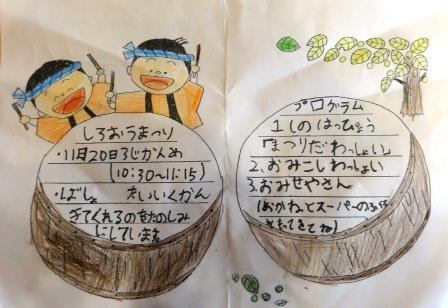 しろおうまつり
・11月20日3じかんめ
(10:30~11:15)
・ばしょ たいいくかん
きてくれるのをたのしみ
にしています。
プログラム
1しのはっぴょう
「まつりだわっしょい」
2、おみこしわっしょい
3、おみせやさん
(おかねとスーパーのふくろ
をもってきてね)